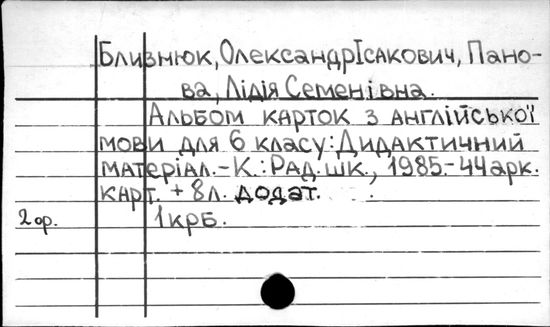 Близнюк, Олександр Ісакович, Пано-
ва, Лідія Семенівна.
Альбом карток з англійської
мови для 6 класу: Дидактичний
матеріал.-К.: Рад. шк., 1985.-44 арк.
карт. + 8 л. додат.
2 ор. 1 крб.